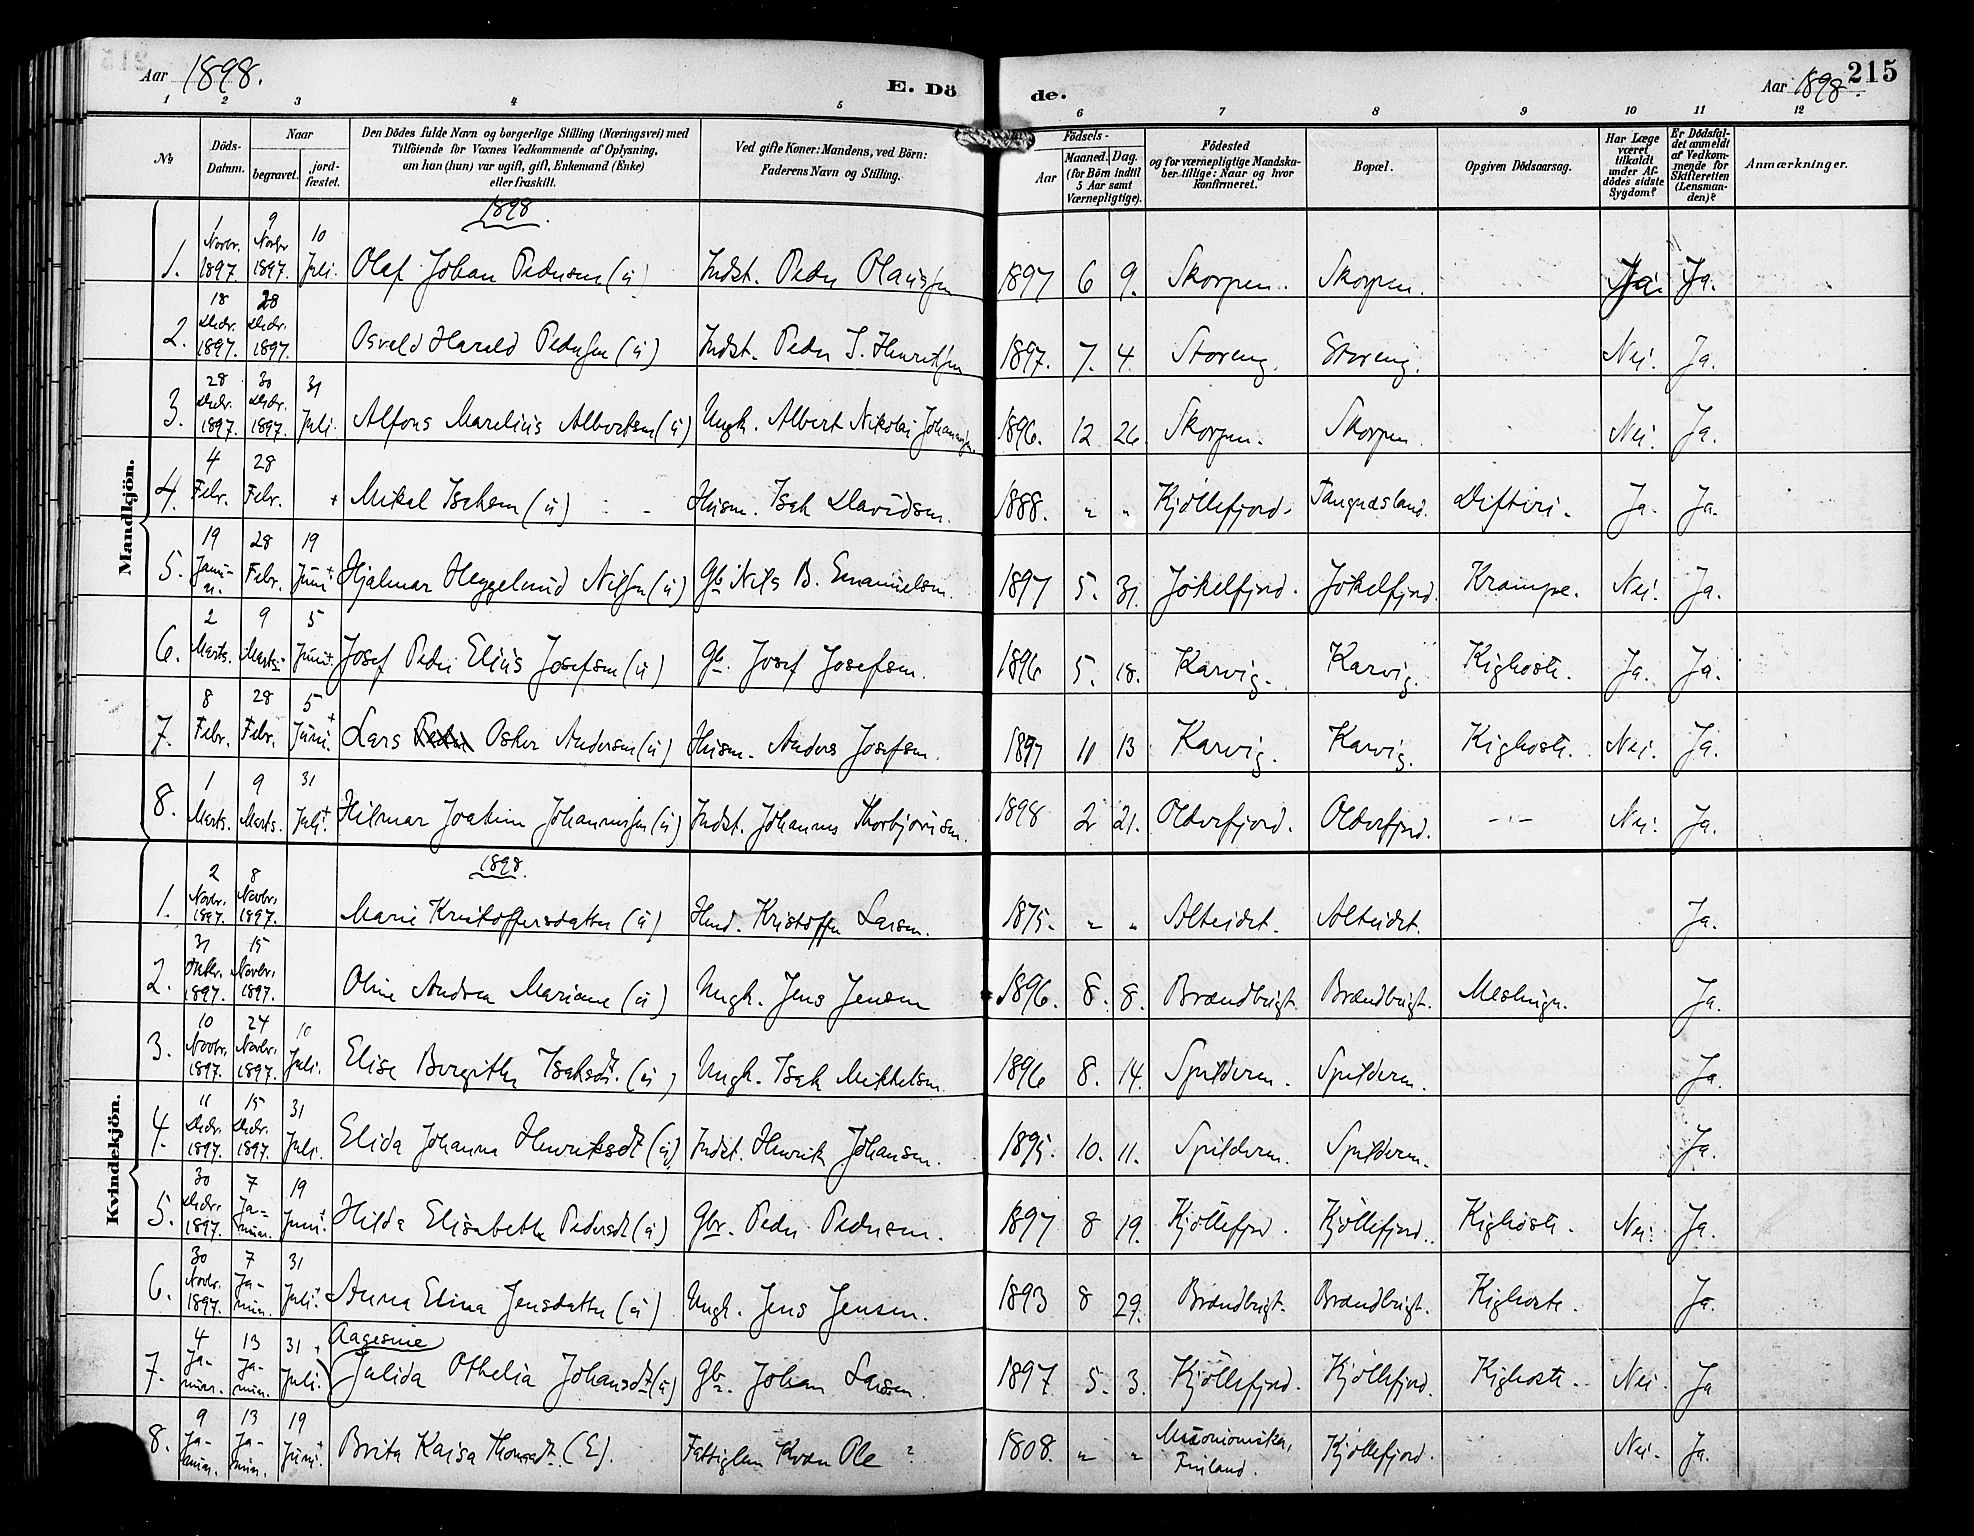 Aar 1898.
E. Döde.
Aar 1898.
215
1 2 3 4 5 6 7 8 9 10 11 12
No
Döds-Datum.
Naar
begravet.
jord-fæstet.
Den Dödes fulde Navn og borgerlige Stilling (Næringsvei) med
Tilföiende for Voxnes Vedkommende af Oplysning,
om han (hun) var ugift, gift, Enkemand (Enke)
eller fraskilt.
Ved gifte Koner: Mandens, ved Börn:
Faderens Navn og Stilling.
Födsels-
Aar
Maaned. Dag.
(for Börn indtil
5 Aar samt
Værnepligtige).
Födested
og for værnepligtige Mandska-
ber tillige: Naar og hvor
konfirmeret.
Bopæl.
Opgiven Dödsaarsag.
Har Læge
været
tilkaldt
under Af-
dödes sidste
Sygdom?
Er Dödsfal-
det anmeldt
af Vedkom-
mende for
Skifteretten
(Lensman-
den)?
Anmærkninger.
Mandkjön.
1898.
1. 1 Novbr. 1897. 9 Novbr 1897. 10 Juli. Olaf Johan Pedersen (u) Indst. Peder Olaussen 1897 6 9. Skorpen. Skorpen. Ja. Ja.
2. 18 Decbr. 1897. 28 Decbr. 1897. Osvald Harald Pedersen (u) Indst. Peder J. Henriksen 1897. 7. 4. Storeng. Storeng. Nei. Ja.
3. 28 Decbr. 1897. 30 Decbr. 1897. 31 Juli. Alfons Marelius Albertsen (u) Ungk. Albert Nikolai Johannesen 1896. 12 26. Skorpen. Skorpen. Nei. Ja.
4. 4 Febr. 28 Febr. + Mikal Isaksen (u) Husm. Isak Davidsen. 1888. " " Kjöllefjord. Tangnæsland. Difteri. Ja. Ja.
5. 19 Janu-ar. 28 Febr. 19 Juni + Hjalmar Heggelund Nilsen (u) Gb. Nils B. Emanuelsen. 1897 5. 31. Jökelfjord. Jökelfjord. Krampe. Nei. Ja.
6. 2 Marts. 9 Marts. 5 Juni. Josef Peder Elius Josefsen (u) Gb. Josef Josefsen. 1896 5. 18. Karvig. Karvig. Kighoste. Ja. Ja.
7. 8 Febr. 28 Febr. 5 Juni. + Lars Oskar Andersen (u) Husm. Anders Josefsen. 1897 11 13 Karvig. Karvig. Kighoste. Nei. Ja.
8. 1 Marts. 9 Marts. 31 Juli. + Hilmar Joakim Johannessen (u) Indst. Johannes Thorbjörnsen. 1898 2 21. Olderfjord. Olderfjord. - " - Nei. Ja.
Kvindekjön.
1898.
1. 2 Novbr. 1897. 8 Novbr. 1897. Marie Kristoffersdatter (u) Kristoffer Larsen. 1875. " " Alteidet. Alteidet. Ja.
2. 31 Oktbr. 1897. 15 Novbr. 1897. Oline Andrea Mariane (u) Ungk. Jens Jensen 1896. 8. 8. Brændbugt. Brændbugt. Ja.
3. 10 Novbr. 1897. 24 Novbr. 1897. 10 Juli. Elise Bergithe Isaksdt. (u) Ungk. Isak Mikkelsen. 1896 8. 14. Spilderen. Spilderen. Ja.
4. 11 Decbr. 1897. 15 Decbr. 1897. 31 Juli. Elida Johanna Henriksdt (u) Indst. Henrik Johansen. 1895. 10. 11. Spilderen. Spilderen. Ja.
5. 30 Decbr. 1897. 7 Ja-nuar. 19 Juni + Hilda Elisabeth Pedersdt (u) Gbr. Peder Pedersen. 1897 8 19. Kjöllefjord. Kjöllefjord. Kighoste. Nei. Ja.
6. 30 Novbr. 1897. 7 Ja-nuar. 31 Juli. + Anna Elina Jensdatter (u) Ungk. Jens Jensen. 1893 8 29. Brændbugt. Brændbugt. Kighoste. Ja.
7. 4 Ja-nuar. 13 Ja-nuar. 31 Juli. + Aagesine
Julida Othelia Johansdt (u) Gbr. Johan Larsen. 1897 5. 3. Kjöllefjord. Kjöllefjord. Kighoste. Nei. Ja
8. 9 Ja-nuar. 13 Ja-nuar. 19 Juni + Brita Kaisa Thomasdt. (E). Fattiglem Kvæn Ole ? 1808. " " Finland. Kjöllefjord. Nei. Ja.